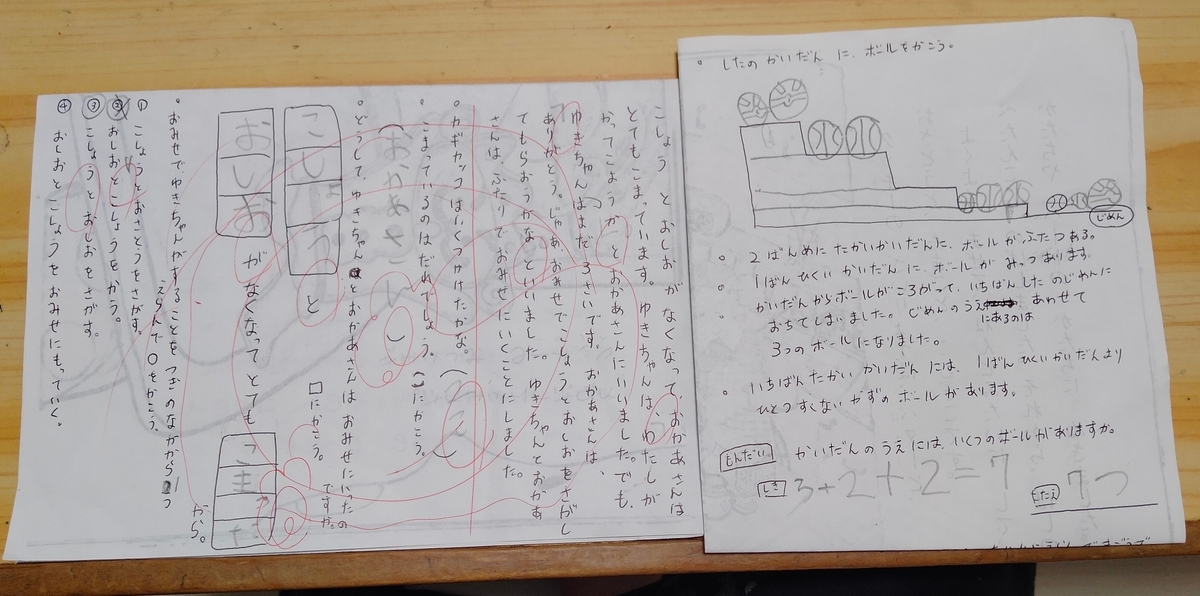 こしょう と おしお が なくなって、おかあさんは
とてもこまっています。ゆきちゃんは、「わたしが
かってこようか」とおかあさんにいいました。でも、
ゆきちゃんはまだ 3さいです。おかあさんは、
「ありがとう。じゃあ、おみせでこしょうとおしおをさがし
てもらおうかな」といいました。ゆきちゃんとおかあ
さんは、ふたりで おみせ にいくことにしました。
。カギカッコはいくつつけたかな。
。こまっているのはだれでしょう。( )にかこう。
(おかあさん)
。どうして、ゆきちゃんとおかあさんは おみせにいったの
ですか。
□にかこう。
こしょう と
おしお が なくなって とても
こまった から。
。おみせで、ゆきちゃんがすることを つぎのなかから1つ
えらんで ○をかこう。
① こしょうとおさとうをさがす。
② おしおとこしょうをかう。
③ こしょうとおしおをさがす。
④ おしおとこしょうを おみせにもっていく。
。 したの かいだん に、ボールをかこう。
じめん
。 2ばんめに たかいかいだんに、ボール が ふたつ ある。
。 1ばん ひくい かいだん に、ボール が みっつ あります。
。 かいだん からボールが ころがって、いちばん したの じめんに
おちてしまいました。じめんのうえ
にあるのは
あわせて
3つの ボールに なりました。
。 いちばん たかい かいだん には、1ばん ひくい かいだん より
ひとつ すくない かずの ボール が あります。
もんだい かいだん のうえには、いくつの ボール がありますか。
しき 3+2+2=7
こたえ 7つ